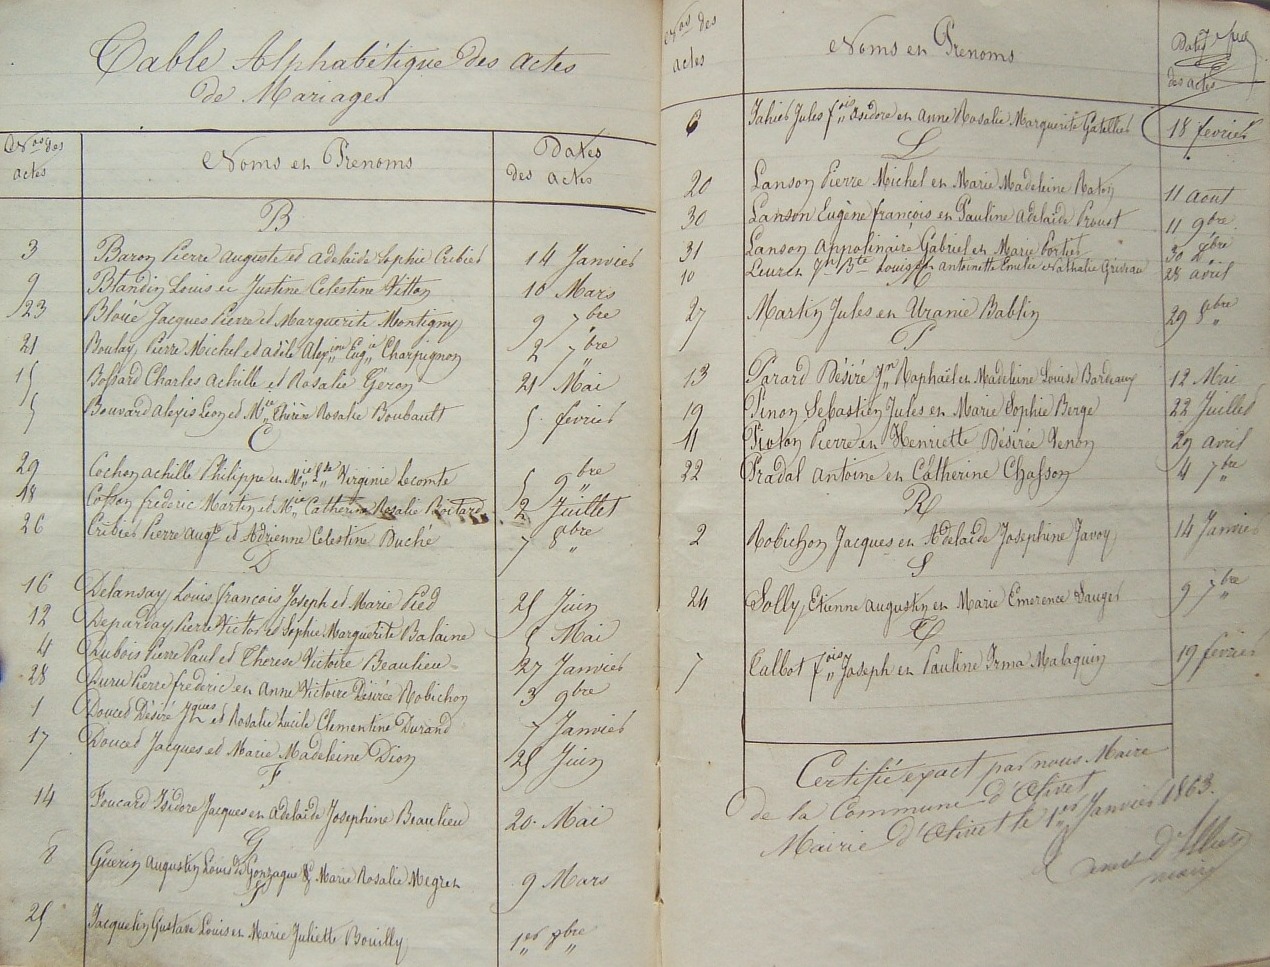 Table Alphabétique des actes
de Mariages
Nos des
actes
Noms et Prenoms
Dates
des actes
B
3 Baron Pierre auguste et adelaïde Sophie Cribier 14 Janvier
9 Blandin Louis et Justine Celestine Vitton 10 Mars
23 Bloüé Jacques Pierre et Marguerite Montigny 9 7bre
21 Boulay Pierre Michel et adèle Charpignon 2 7bre
15 Bossard Charles achille et Rosalie Geron 21 Mai
5 Bouvard alexis Leon et Rosalie Boubault 5 fevrier
C
29 Cochon achille Philippe et Virginie Lecomte 5 9bre
18 Cosson frederic Martin et Mie Catherine Rosalie Boitard 2 Juillet
26 Cribier Pierre augte et Adrienne Celestine Buché 7 8bre
D
16 Delansay Louis françois Joseph et Marie Pied 25 Juin
12 Deparday Pierre Victor et Sophie Marguerite Balaine 5 Mai
4 Dubois Pierre Paul et Therese Victoire Beaulieu 27 Janvier
28 Duru Pierre frederic et anne Victoire Désirée Robichon 3 9bre
1 Doucet Désiré Jques et Rosalie Lucile Clementine Durand 7 Janvier
17 Doucet Jacques et Marie Madeleine Dion 25 Juin
F
14 Foucard Isidore Jacques et adelaïde Josephine Beaulieu 20 Mai
G
8 Guerin augustin Louis de Gonzague et Marie Rosalie Megret 9 Mars
J
25 Jacquelin Gustave Louis et Marie Juliette Bouilly 1er 8bre
Nos des
actes
Noms et Prenoms
Dates
des actes
6 Jahier Jules fois Isidore et anne Rosalie Marguerite Gatellier 18 fevrier
L
20 Lanson Pierre Michel et Marie Madeleine Raton 11 aout
30 Lanson Eugène françois et Pauline adelaïde Proust 11 9bre
31 Lanson appolinaire Gabriel et Marie Porcher 30
10 Jn Bte Louis et antoinette Emelie Nathalie 28 avril
M
27 Martin Jules et Uranie Bablin 29 8bre
P
13 Parard Désiré Jn Raphaël et Madeleine Louise Bardeaux 12 Mai
19 Pinon Sebastien Jules et Marie Sophie Berge 22 Juillet
11 Pioton Pierre et Henriette Désirée Venon 29 avril
22 Pradal antoine et Catherine Chasson 4 7bre
R
2 Robichon Jacques et Adelaïde Josephine Javoy 14 Janvier
S
24 Solly Etienne augustin et Marie Emerence Sauger 9 7bre
T
7 Talbot fois Joseph et Pauline Irma Malaquin 19 fevrier
Certifié exact par nous Maire
de la Commune d'Olivet
Mairie d'Olivet le 1er Janvier 1863.
maire